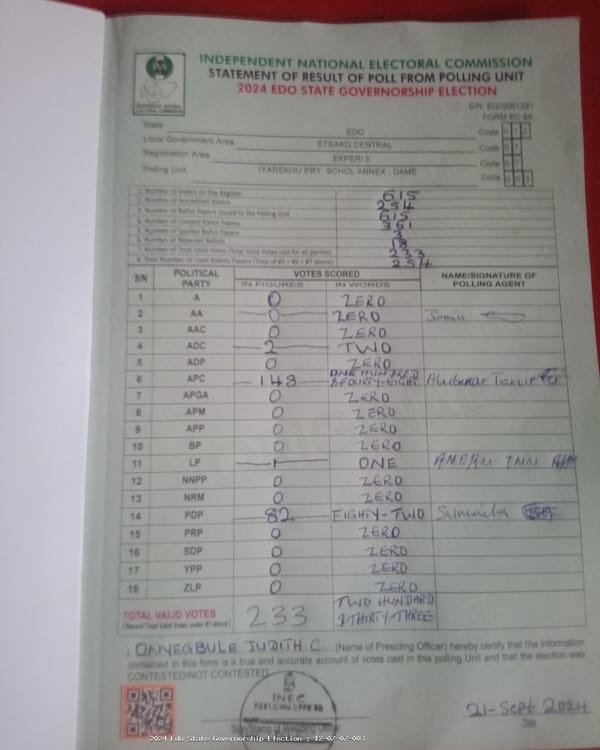 INDEPENDENT NATIONAL ELECTORAL COMMISSION
STATEMENT OF RESULT OF POLL FROM POLLING UNIT
2024 EDO STATE GOVERNORSHIP ELECTION
FORM EC 8A
State EDO Code 0 1 2
Local Government Area ETSAKO CENTRAL Code 0 7
Registration Area EKPERI II Code 0 7
Polling Unit IYAREKHU PRY. SCHOL ANNEX, DAME Code 0 0 3
1. Number of Voters on the Register 615
2. Number of Accredited Voters 254
3. Number of Ballot Papers Issued to the Polling Unit 615
4. Number of Unused Ballot Papers 361
5. Number of Spoiled Ballot Papers 3
6. Number of Rejected Ballots 18
7. Number of Total Valid Votes (Total Valid Votes cast for all parties) 233
8. Total Number of Used Ballot Papers (Total of #5 + #6 + #7 above) 254
S/N POLITICAL PARTY VOTES SCORED NAME/SIGNATURE OF POLLING AGENT
IN FIGURES IN WORDS
1 A 0 ZERO
2 AA 0 ZERO
3 AAC 0 ZERO
4 ADC 2 TWO
5 ADP 0 ZERO
6 APC 148 ONE HUNDRED & FOURTY-EIGHT
7 APGA 0 ZERO
8 APM 0 ZERO
9 APP 0 ZERO
10 BP 0 ZERO
11 LP 1 ONE
12 NNPP 0 ZERO
13 NRM 0 ZERO
14 PDP 82 EIGHTY-TWO
15 PRP 0 ZERO
16 SDP 0 ZERO
17 YPP 0 ZERO
18 ZLP 0 ZERO
TOTAL VALID VOTES 233 TWO HUNDARD & THIRTY-THREE
(Record Total Valid Votes under #7 above)
I ONYEGBULE JUDITH C. (Name of Presiding Officer) hereby certify that the information
contained in this form is a true and accurate account of votes cast in this polling Unit and that the election was
CONTESTED/NOT CONTESTED
INEC
PRESIDING OFFICER
21-Sept 2024
Date
2024 Edo State Governorship Election : 12-07-07-003